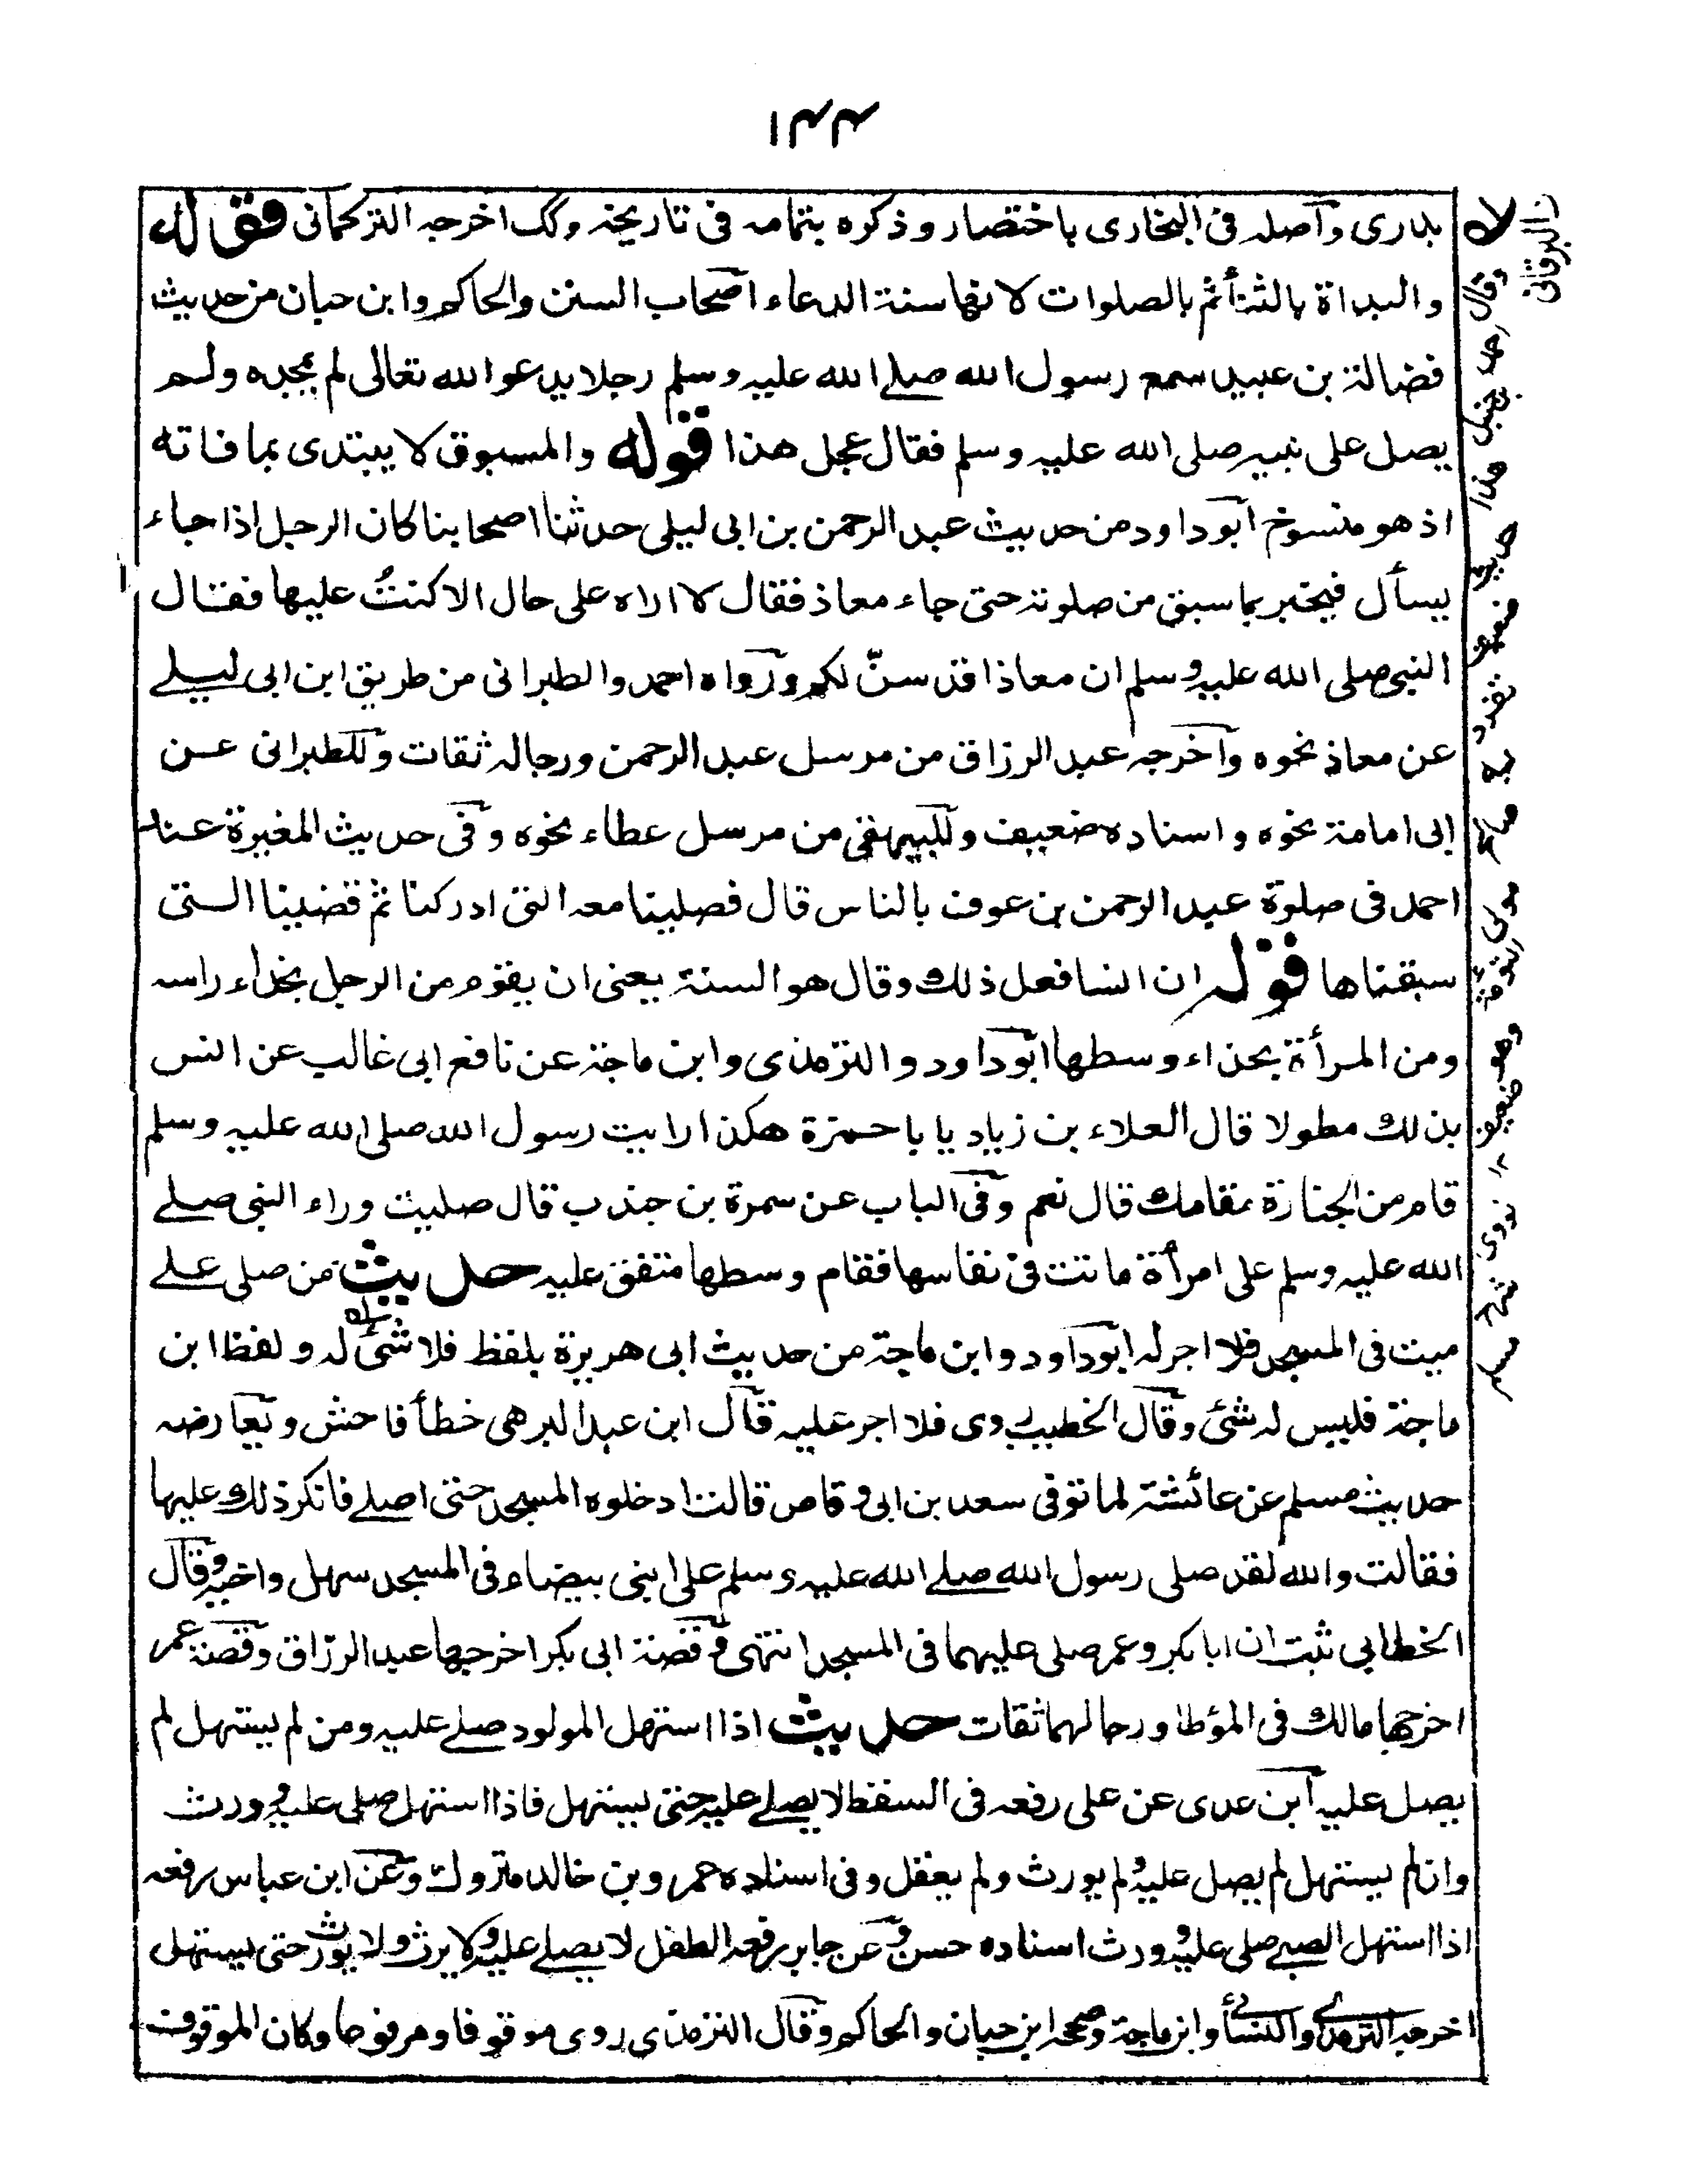 ۱۴۴
بدرى وآصله فى البخارى باختصار وذكره بتمامه فى تاريخه وكك اخرجه الترکمانى قوله
والبداة بالثنأ ثم بالصلوات لانها سنة الدعاء اصحاب السنن والحاكم وابن حبان من حديث
فضالة بن عبيد سمع رسول الله صلے الله عليه وسلم رجلا يدعو الله تعالى لم يمجده ولم
يصل على نبيه صلى الله عليه وسلم فقال عجل هذا قوله والمسبوق لا يبتدى بما فاته
اذ هو منسوخ ابوداود من حديث عبد الرحمن بن ابى ليلى حدثنا اصحابنا كان الرجل اذا جاء
يسأل فيخبر بما سبق من صلوته حتى جاء معاذ فقال لا اراه على حال الا كنتُ عليها فقال
النبى صلى الله عليه وسلم ان معاذا قد سنّ لكم ورواه احمد والطبرانى من طريق ابن ابى ليلے
عن معاذ نحوه وآخرجه عبد الرزاق من مرسل عبد الرحمن ورجاله ثقات وللطبرانى عن
ابى امامة نحوه واسناده ضعيف وللبيهقى من مرسل عطاء نحوه وفى حديث المغيرة عند
احمد فى صلوة عبد الرحمن بن عوف بالناس قال فصلينا معه التى ادركنا ثم قضينا التى
سبقناها قوله ان انسا فعل ذلك وقال هو السنة يعنى ان يقوم من الرجل بحذاء راسه
ومن المرأة بحذاء وسطها ابوداود والترمذى وابن ماجة عن نافع ابى غالب عن انس
بذلك مطولا قال العلاء بن زياد يا با حمزة هكذا رايت رسول الله صلى الله عليه وسلم
قام من الجنازة بمقامك قال نعم وفى الباب عن سمرة بن جندب قال صليت وراء النبى صلے
الله عليه وسلم على امرأة ماتت فى نفاسها فقام وسطها متفق عليه حديث من صلى علے
ميت فى المسجد فلا اجر له ابوداود وابن ماجة من حديث ابى هريرة بلفظ فلا شئ له ولفظ ابن
ماجة فليس له شئ وقال الخطيب روى فلا اجر عليه قال ابن عبد البر هى خطأ فاحش ويعارضه
حديث مسلم عن عائشة لما توفى سعد بن ابى وقاص قالت ادخلوه المسجد حتى اصلے فانكر ذلك عليها
فقالت والله لقد صلى رسول الله صلے الله عليه وسلم على ابنى بيضاء فى المسجد سهل واخيه وقال
الخطابى ثبت ان ابا بكر وعمر صلى عليهما فى المسجد انتهى وقصة ابى بكر اخرجها عبد الرزّاق وقصة عمر
اخرجها مالك فى المؤطا ورجالهما ثقات حديث اذا استهل المولود صلے عليه ومن لم يستهل لم
يصل عليه ابن عدى عن على رفعه فى السقط لا يصلے عليه حتى يستهل فاذا استهل صلى عليه وورث
وان لم يستهل لم يصل عليه ولم يورث ولم يعقل وفى اسناده عمرو بن خالد متروك وعن ابن عباس رفعه
اذا استهل الصبے صلى عليه وورث اسناده حسن وعن جابر رفعه الطفل لا يصلے عليه ولا يرث ولا يورث حتى يستهل
اخرجه الترمذے والنسأے وابن ماجة وصححه ابن حبان والحاكم وقال الترمذى روى موقوفا ومرفوعا وكان الموقوف
وقال احمد بن حنبل هذا حديث ضعيف تفرد به صالح مولى التوأمة وهو ضعيف ۱۲ نووى شرح مسلم